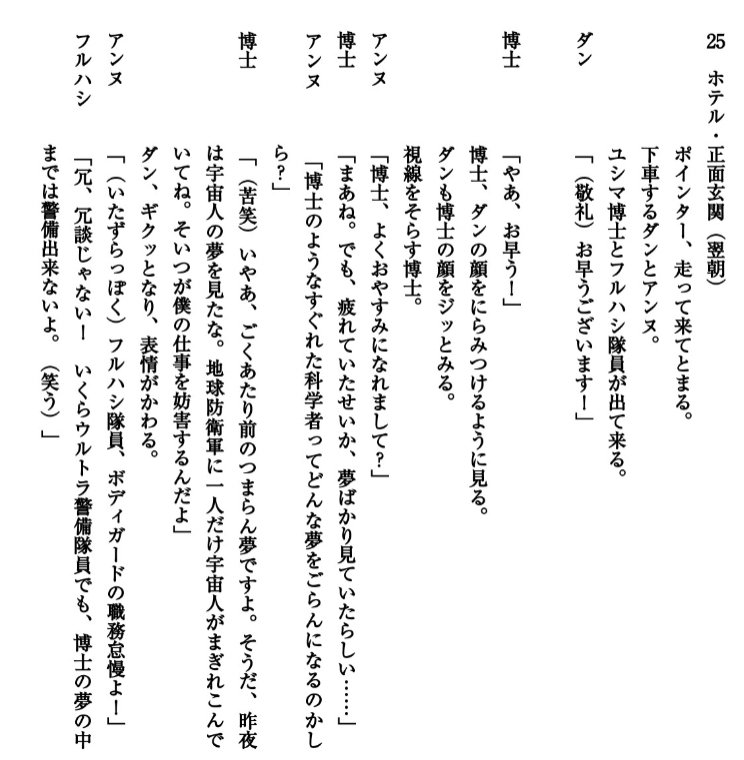 25　ホテル・正面玄関（翌朝）
ポインター、走って来てとまる。
下車するダンとアンヌ。
ユシマ博士とフルハシ隊員が出て来る。
ダン　「（敬礼）お早うございます！」
博士　「やあ、お早う！」
博士、ダンの顔をにらみつけるように見る。
ダンも博士の顔をジッとみる。
視線をそらす博士。
アンヌ　「博士、よくおやすみになれまして？」
博士　「まあね。でも、疲れていたせいか、夢ばかり見ていたらしい……」
アンヌ　「博士のようなすぐれた科学者ってどんな夢をごらんになるのかし
ら？」
博士　「（苦笑）いやあ、ごくあたり前のつまらん夢ですよ。そうだ、昨夜
は宇宙人の夢を見たな。地球防衛軍に一人だけ宇宙人がまぎれこんで
いてね。そいつが僕の仕事を妨害するんだよ」
ダン、ギクッとなり、表情がかわる。
アンヌ　「（いたずらっぽく）フルハシ隊員、ボディガードの職務怠慢よ！」
フルハシ　「冗、冗談じゃない！　いくらウルトラ警備隊員でも、博士の夢の中
までは警備出来ないよ。（笑う）」